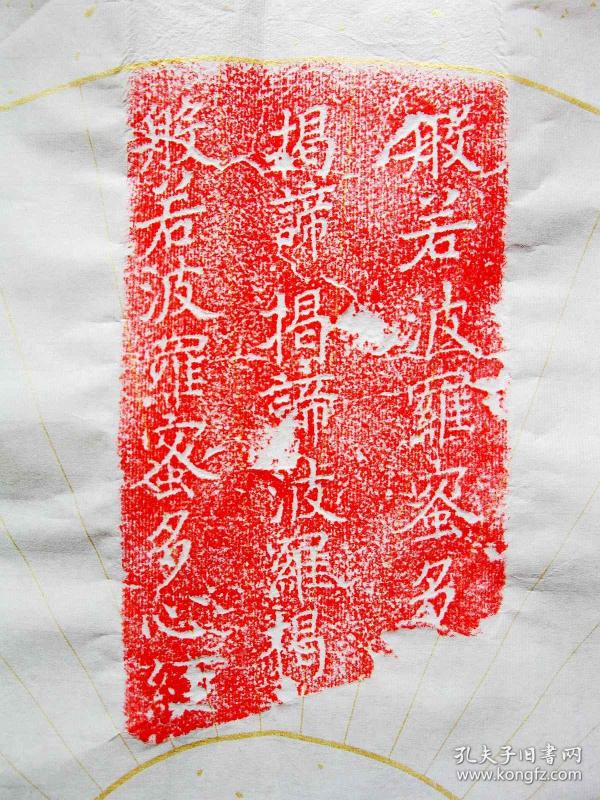 般若波羅蜜多
揭諦揭諦波羅揭
般若波羅蜜多心経
孔夫子旧書网
www.kongfz.com